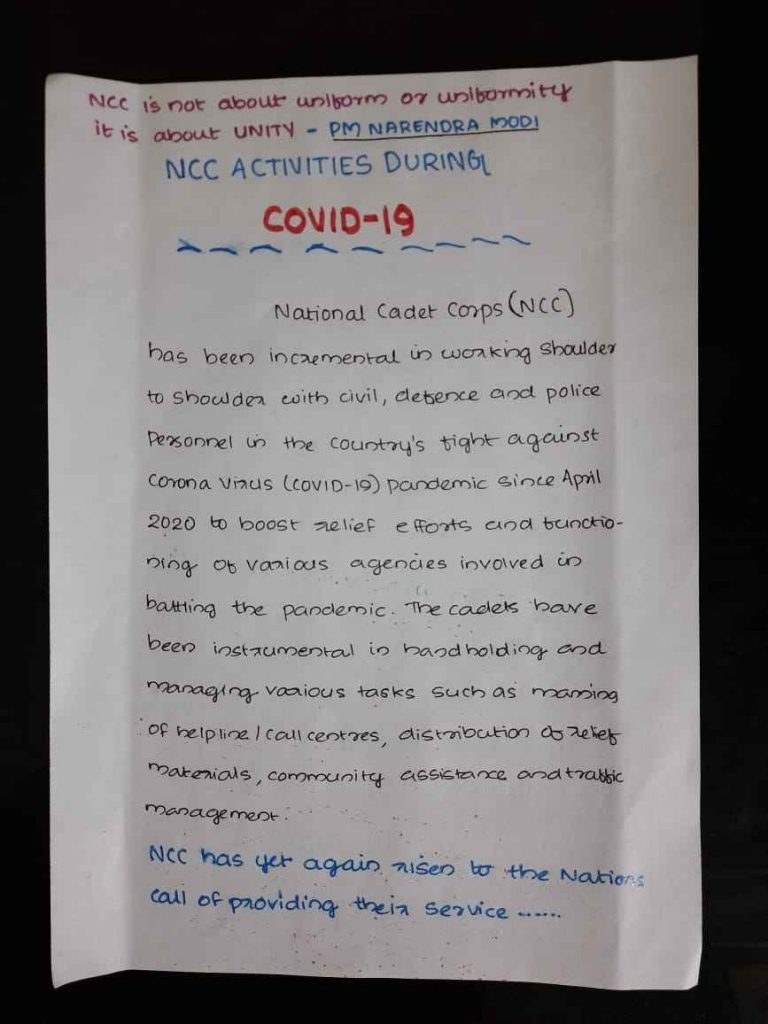 NCC is not about uniform or uniformity
it is about UNITY - PM NARENDRA MODI
NCC ACTIVITIES DURING
COVID-19
National Cadet Corps (NCC)
has been incremental in working shoulder
to shoulder with civil, defence and police
Personnel in the country's fight against
Corona Virus (COVID-19) pandemic since April
2020 to boost relief efforts and functio-
ning of various agencies involved in
battling the pandemic. The cadets have
been instrumental in handholding and
managing various tasks such as manning
of helpline/call centres, distribution of relief
materials, community assistance and traffic
management.
NCC has yet again risen to the Nations
call of providing their service ......